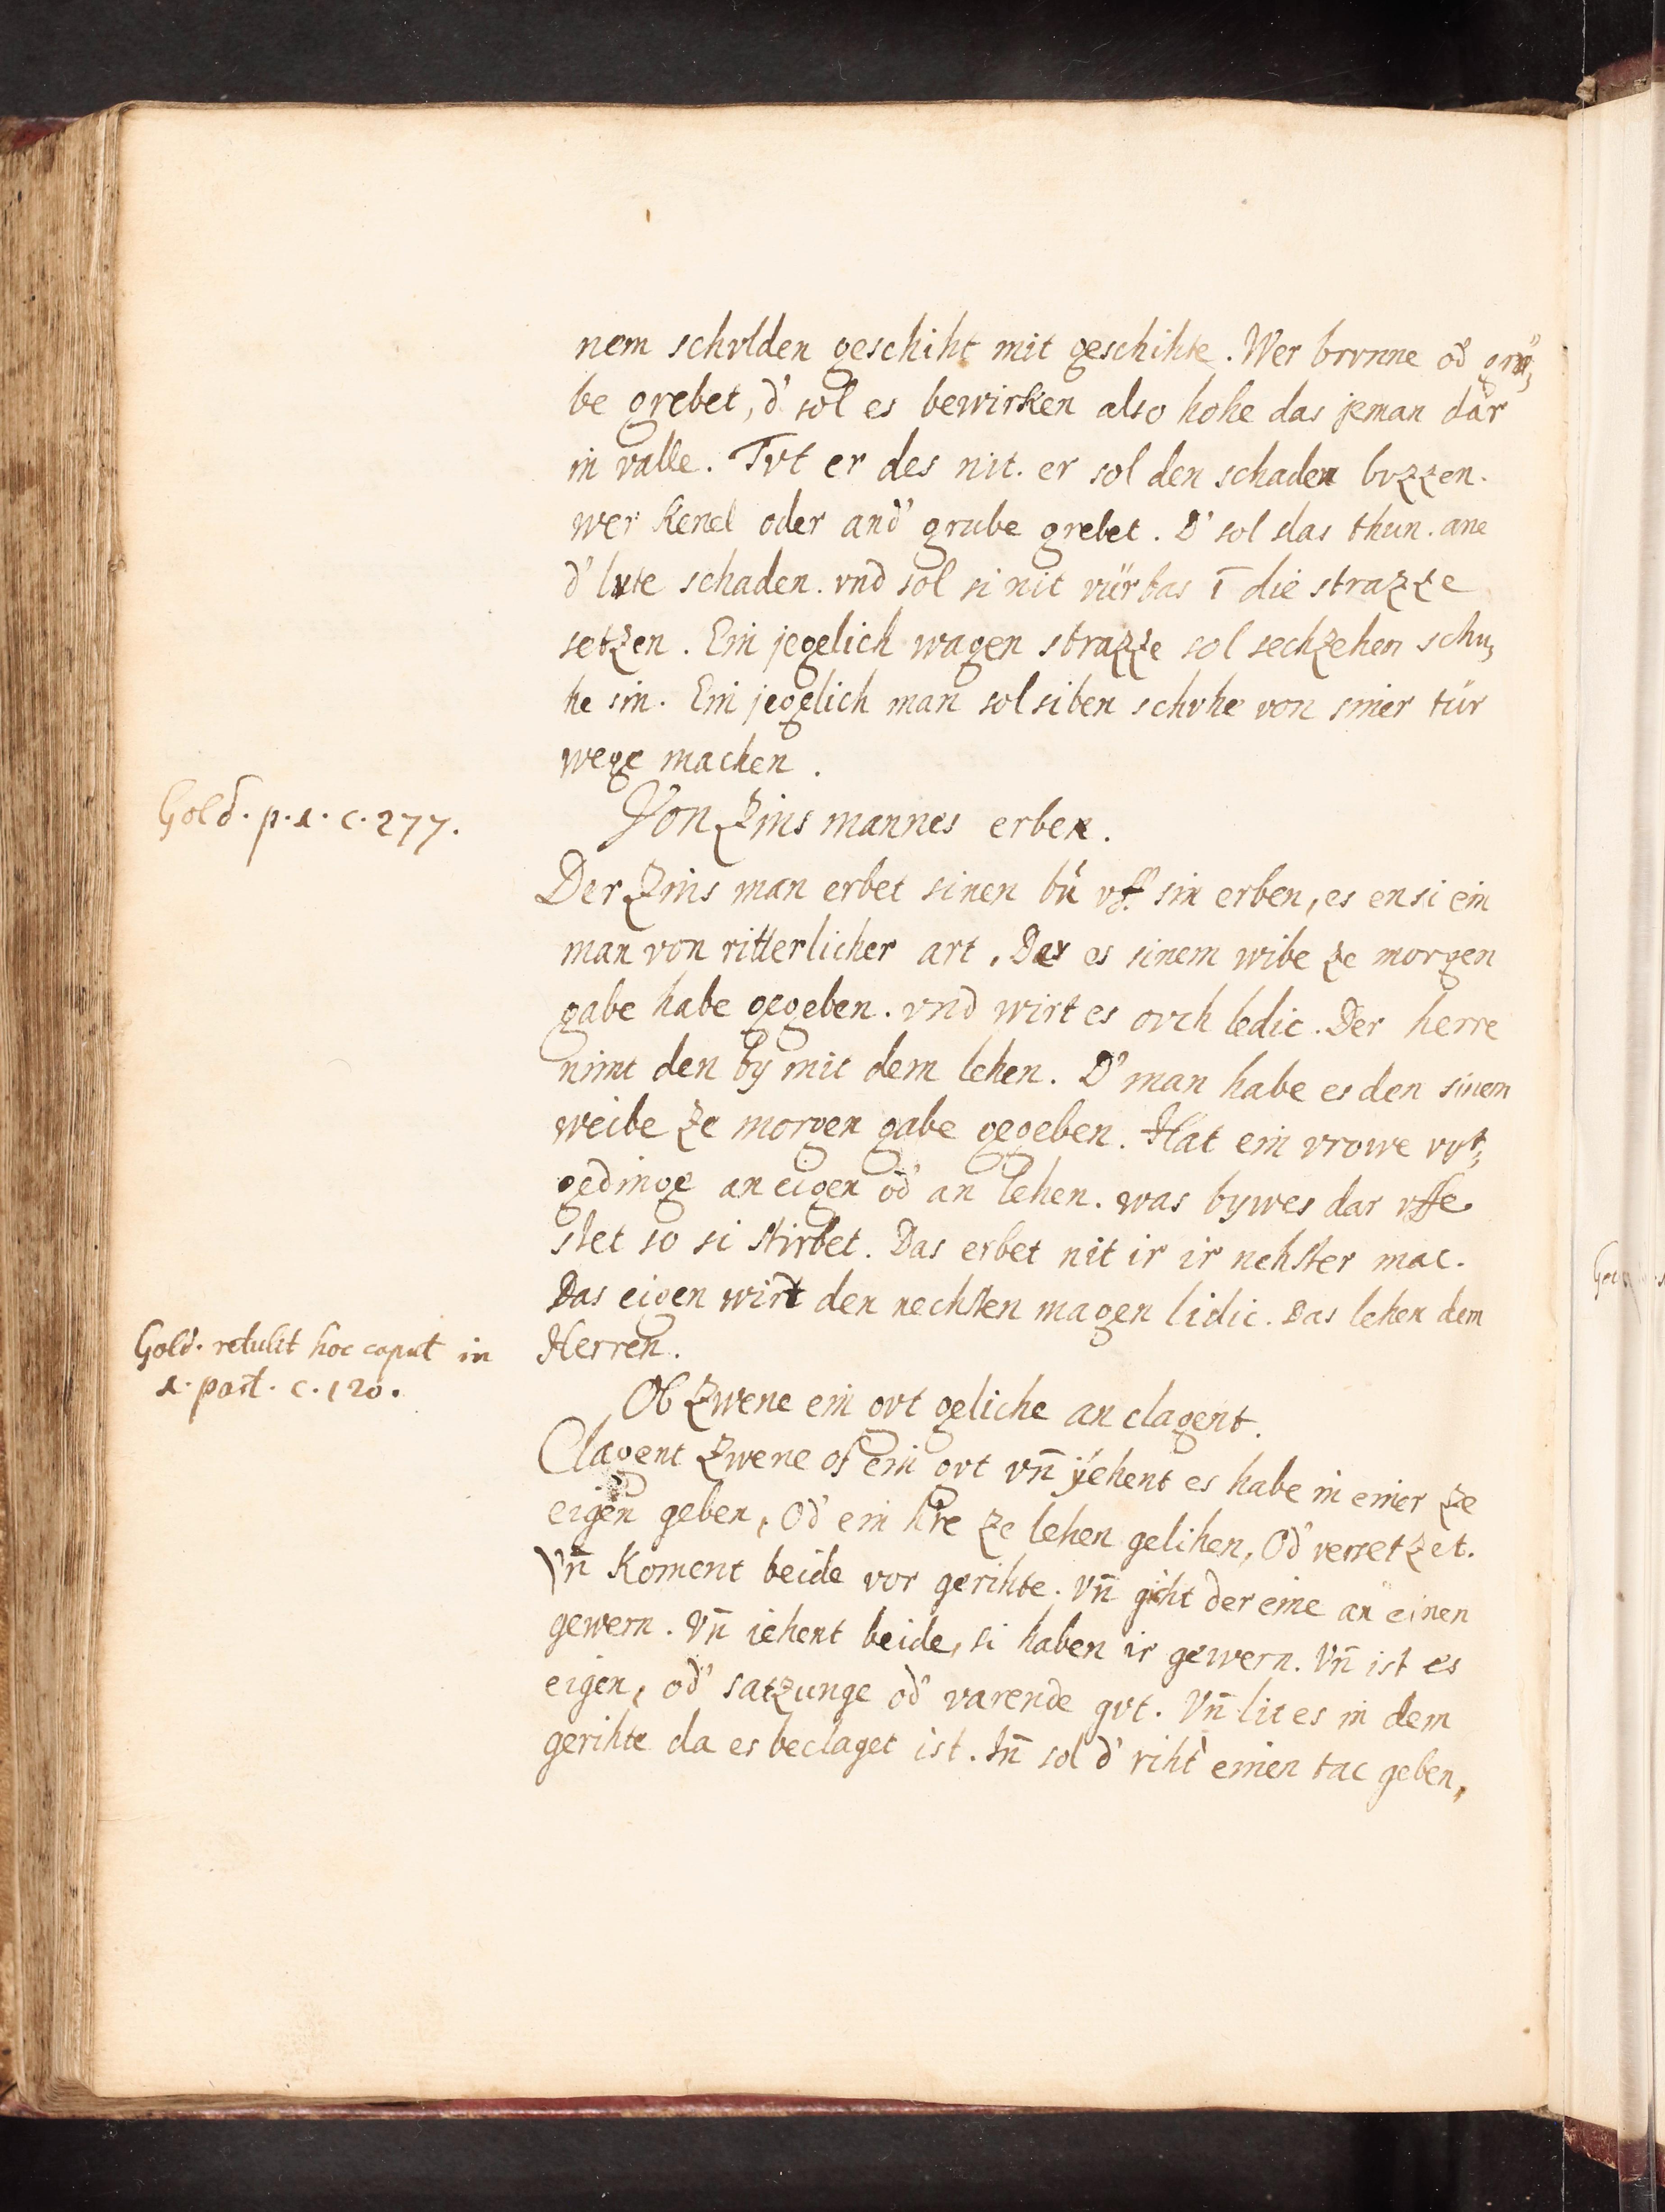 nem schvlden geschiht mit geschihte. Wer brvnne od grü,
be grebet, d' sol es bewirken also hohe das jeman dar
in valle. Tvt er des nit. er sol den schaden bvzzen.
wer kenel oder and' grube grebet. D' sol das thun. ane
d' lvte schaden. vnd sol si nit vürbas ī die strazze
setzen. Ein jegelich wagen strazze sol sechzehen schu,
he sin. Ein jegelich man sol siben schvhe von siner tür
wege machen.
Gold. p. 1. c. 277.
Von Zins mannes erben.
Der Zins man erbet sinen bú vff sin erben, es en si ein
man von ritterlicher art. Der es sinem wibe ze morgen
gabe habe gegeben. vnd wirt es ovch ledic. Der herre
nimt den by mit dem lehen. D' man habe es den sinem
weibe ze morgen gabe gegeben. Hat ein vrowe
gedinge an eigen od' an lehen. was bywes dar vffe
stet so si stirbet. Das erbet nit ir ir nehster mac.
Das eigen wirt den nechsten magen lidic. Das lehen dem
Herren.
Gold. retulit hoc caput in
1. part. c. 120.
Ob Zwene ein gvt geliche an clagent.
Clagent Zwene of ein gvt vn̄ ÿehent es habe in einer ze
eigen geben, Od' ein hre ze lehen gelihen, Od' versetzet.
Vn̄ Koment beide vor gerihte. Vn̄ giht der eine an einen
gewern. Vn̄ iehent beide, si haben ir gewern. Vn̄ ist es
eigen, od' satzunge od' varende gvt. Vn̄ lit es in dem
gerihte da es beclaget ist. In̄ sol d' riht' einen tac geben,